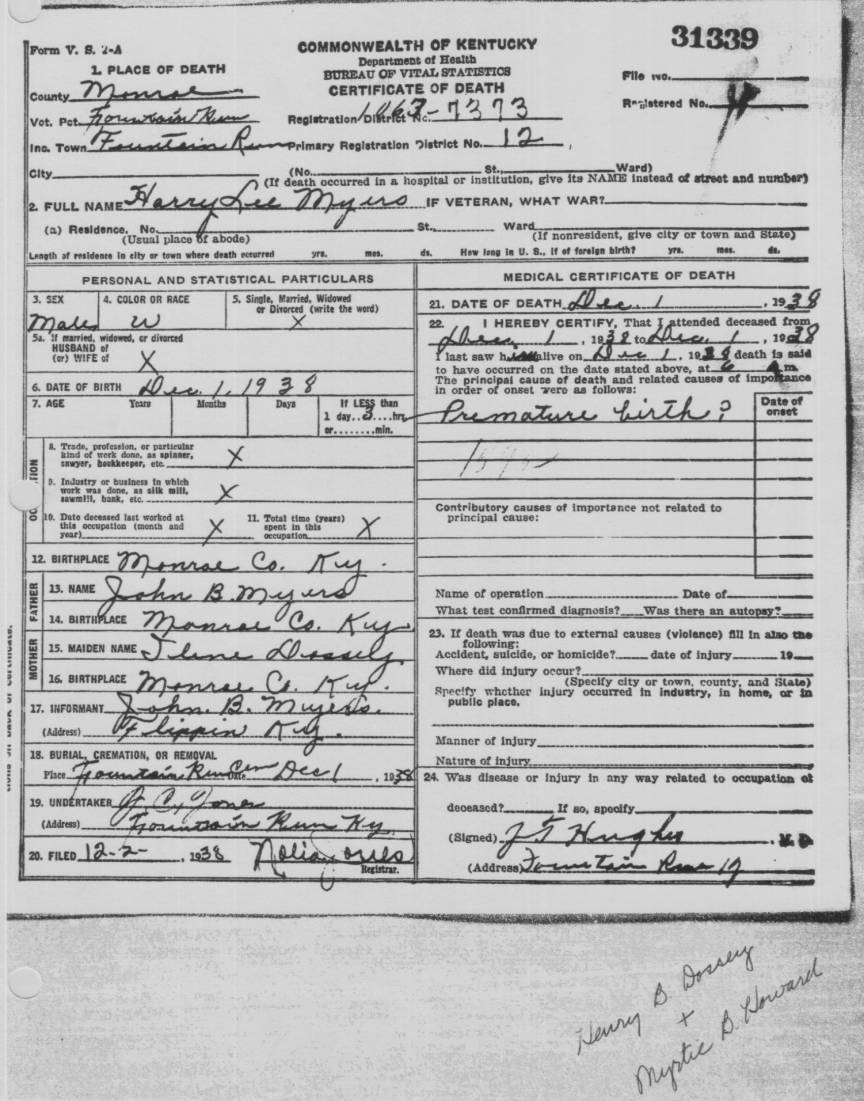 31339
Form V. S. 2-A
COMMONWEALTH OF KENTUCKY
Department of Health
BUREAU OF VITAL STATISTICS
CERTIFICATE OF DEATH
1. PLACE OF DEATH
County Monroe
Vot. Pct. Fountain Run
Inc. Town Fountain Run
File No.
Registered No.
Registration District No. 1067-7373
Primary Registration District No. 12
City (No. St., Ward)
(If death occurred in a hospital or institution, give its NAME instead of street and number)
2. FULL NAME Harry Lee Myers IF VETERAN, WHAT WAR?
(a) Residence. No. St., Ward
(Usual place of abode) (If nonresident, give city or town and State)
Length of residence in city or town where death occurred yrs. mos. ds. How long in U. S., if of foreign birth? yrs. mos. ds.
PERSONAL AND STATISTICAL PARTICULARS
3. SEX 4. COLOR OR RACE 5. Single, Married, Widowed
or Divorced (write the word)
Male W X
5a. If married, widowed, or divorced
HUSBAND of
(or) WIFE of X
6. DATE OF BIRTH Dec. 1, 1938
7. AGE Years Months Days If LESS than
1 day..3....hrs.
or........min.
OCCUPATION
8. Trade, profession, or particular
kind of work done, as spinner,
sawyer, bookkeeper, etc. X
9. Industry or business in which
work was done, as silk mill,
sawmill, bank, etc. X
10. Date deceased last worked at
this occupation (month and
year) X
11. Total time (years)
spent in this
occupation X
12. BIRTHPLACE Monroe Co. Ky.
FATHER
13. NAME John B. Myers
14. BIRTHPLACE Monroe Co. Ky.
MOTHER
15. MAIDEN NAME Ilene Dossey
16. BIRTHPLACE Monroe Co. Ky.
17. INFORMANT John. B. Myers.
(Address) Flippin Ky.
18. BURIAL, CREMATION, OR REMOVAL
Place Fountain Run Cem Dec 1, 1938
19. UNDERTAKER J. C. Jones
(Address) Fountain Run Ky
20. FILED 12-2-, 1938 Nolia Jones
Registrar.
MEDICAL CERTIFICATE OF DEATH
21. DATE OF DEATH Dec. 1, 1938
22. I HEREBY CERTIFY, That I attended deceased from
Dec. 1, 1938 to Dec. 1, 1938
I last saw him alive on Dec 1, 1938 death is said
to have occurred on the date stated above, at 6 A m.
The principal cause of death and related causes of importance
in order of onset were as follows:
Date of
onset
Premature birth?
Contributory causes of importance not related to
principal cause:
Name of operation Date of
What test confirmed diagnosis? Was there an autopsy?
23. If death was due to external causes (violence) fill in also the
following:
Accident, suicide, or homicide? date of injury 19
Where did injury occur?
(Specify city or town, county, and State)
Specify whether injury occurred in industry, in home, or in
public place.
Manner of injury
Nature of injury
24. Was disease or injury in any way related to occupation of
deceased? If so, specify
(Signed) J T Hughes, M. D.
(Address) Fountain Run Ky
Henry B. Dossey
+
Myrtie B. Howard